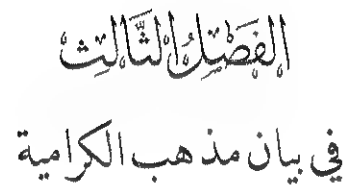 الفَصْلُ الثَّالِثُ
في بيان مذهب الكرامية